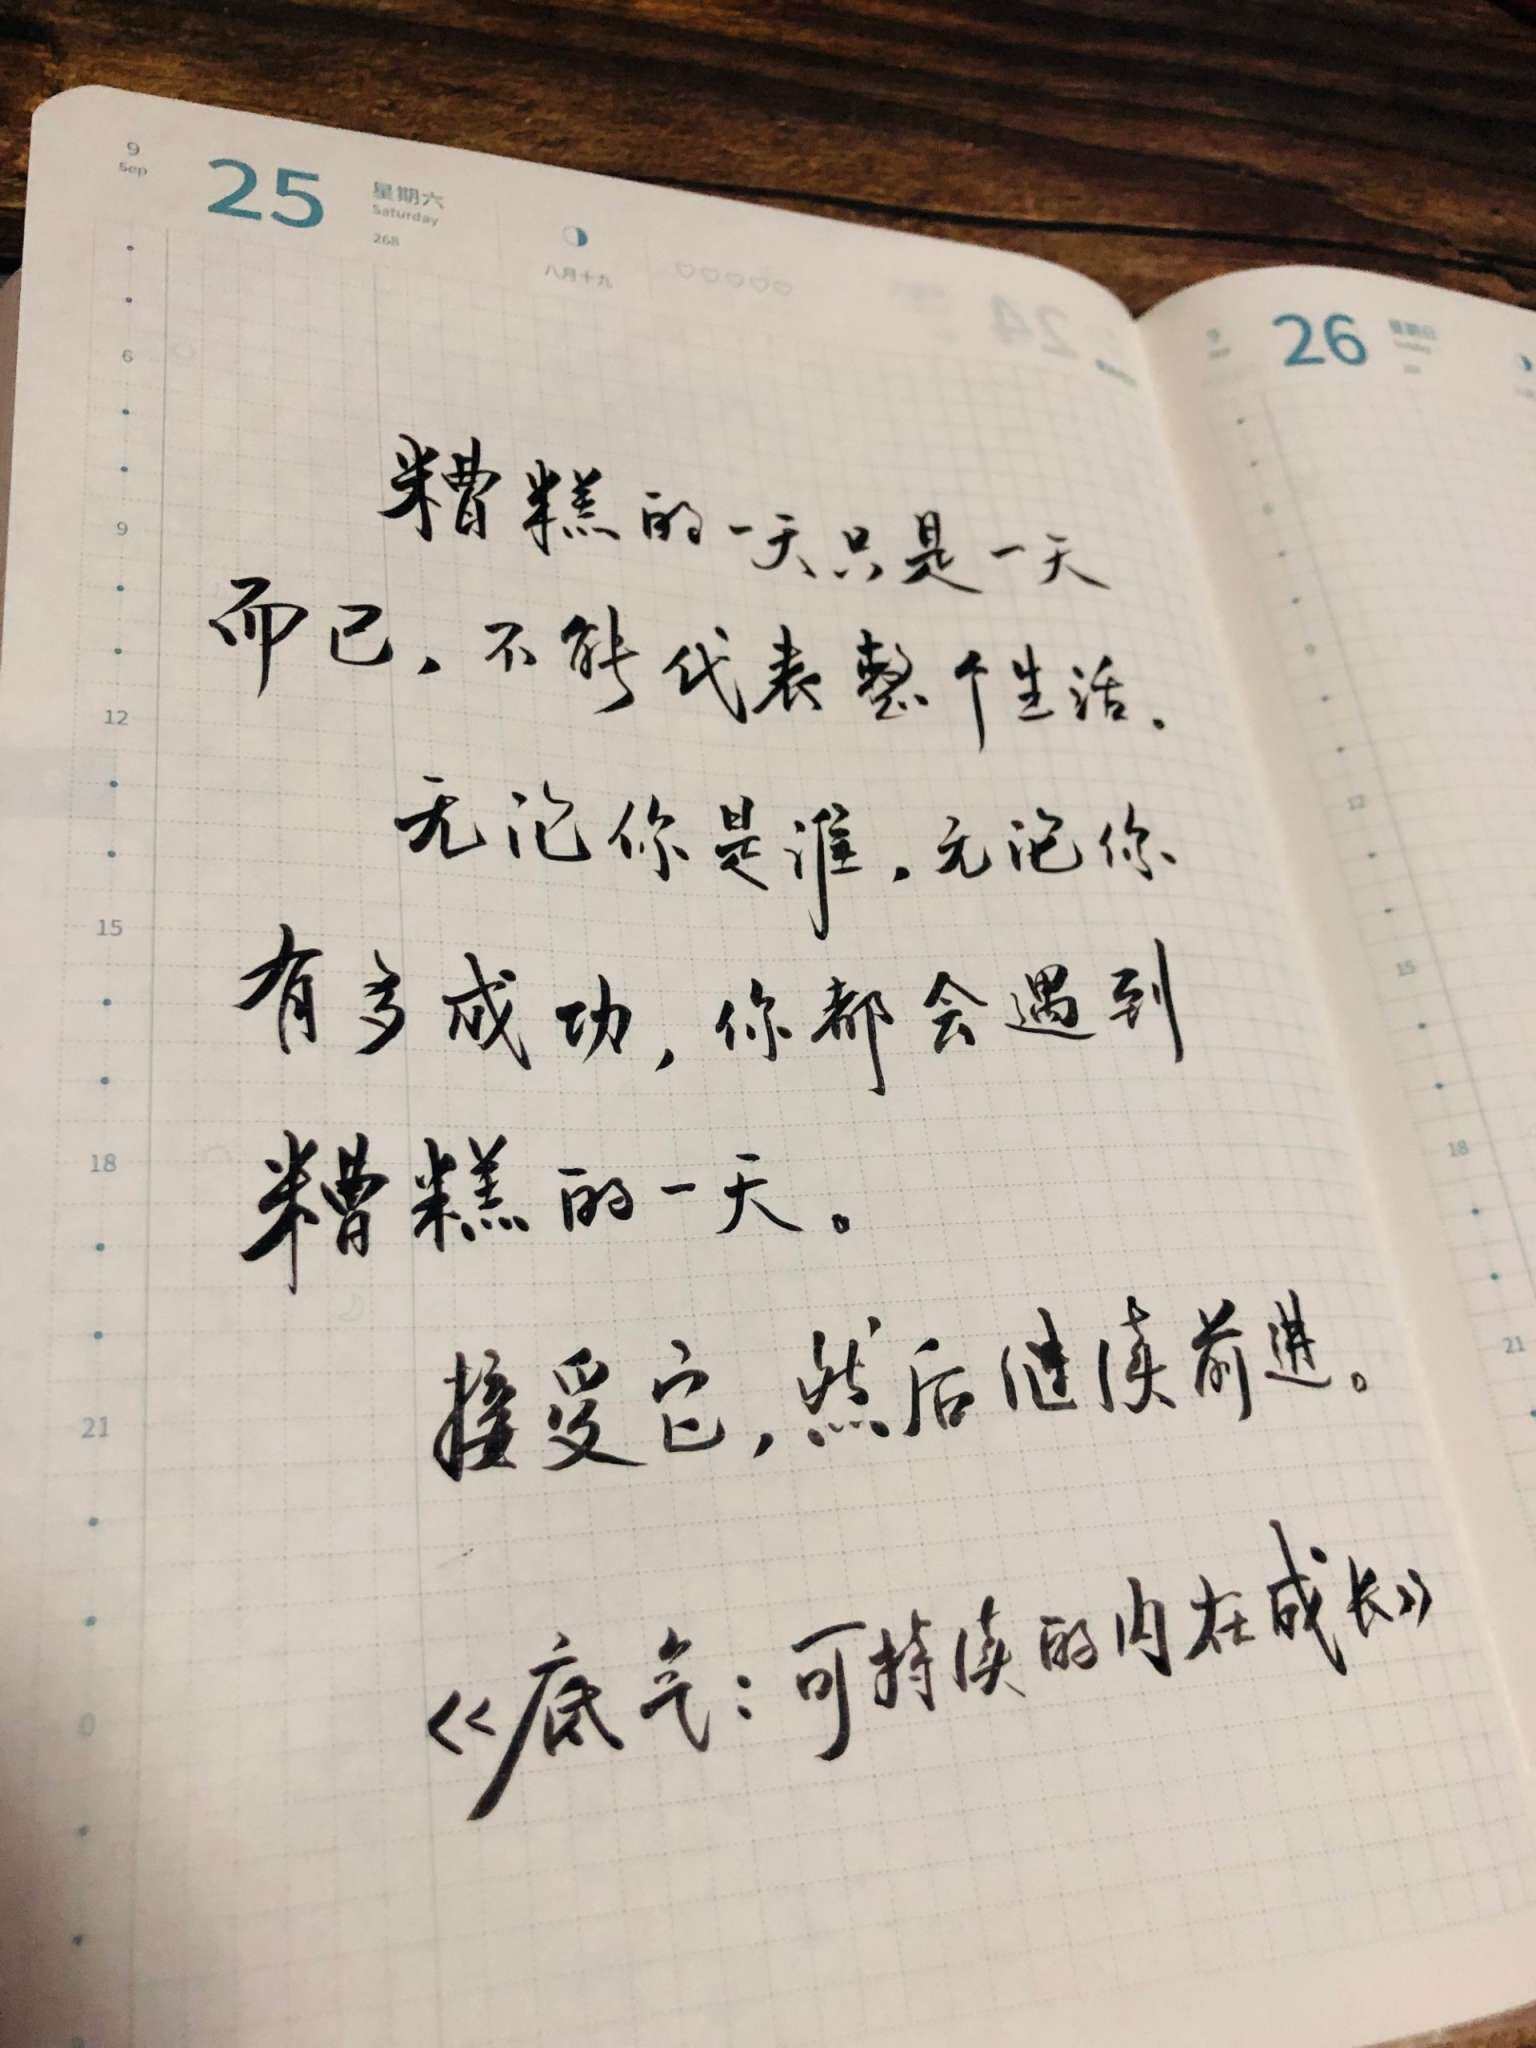 9
Sep
25
星期六
Saturday
268
八月十九
24
26
6
9
12
15
18
21
0
糟糕的一天只是一天
而已，不能代表整个生活。
无论你是谁，无论你
有多成功，你都会遇到
糟糕的一天。
接受它，然后继续前进。
《底气：可持续的内在成长》
12
15
18
21